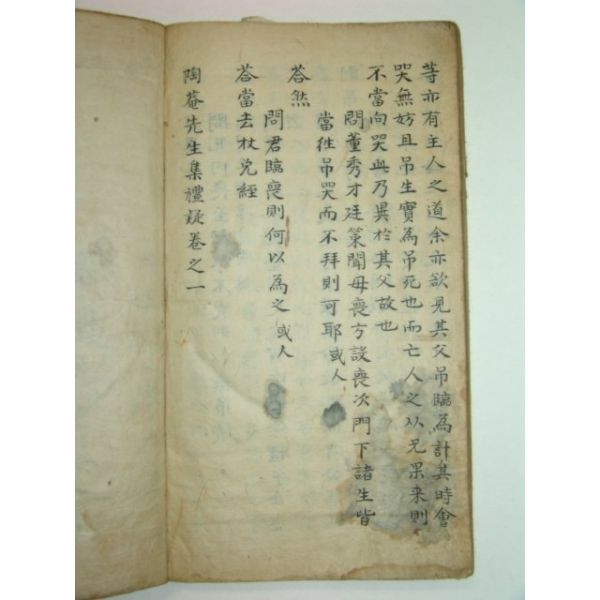 等亦有主人之道余亦欲見其父吊臨為計其時會
哭無妨且吊生實為吊死也而亡人之从兄果来則
不當向哭此乃異於其父故也
問董秀才廷策聞毋喪方設喪次門下諸生皆
當往吊哭而不拜則可耶或人
答然
問君臨喪則何以為之或人
答當去杖免絰
陶菴先生集禮疑卷之一